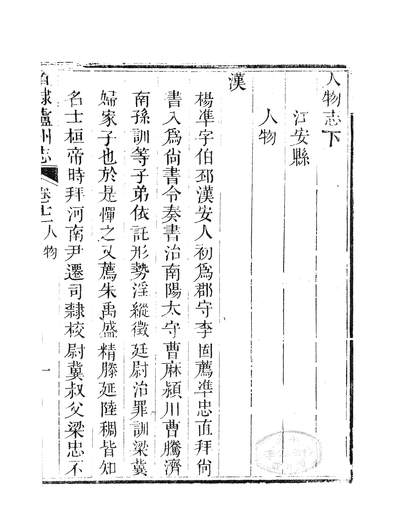 人物志下
江安縣
人物
漢
楊準字伯邳漢安人初爲郡守李固薦準忠直拜尙
書入爲尙書令奏書治南陽太守曹麻潁川曹騰濟
南孫訓等子弟依託形勢淫縱徵廷尉治罪訓梁冀
婦家子也於是憚之又薦朱禹盛精滕延陸稠皆知
名士桓帝時拜河南尹遷司隸校尉冀叔父梁忠不
直隸瀘州志
卷十一人物
一